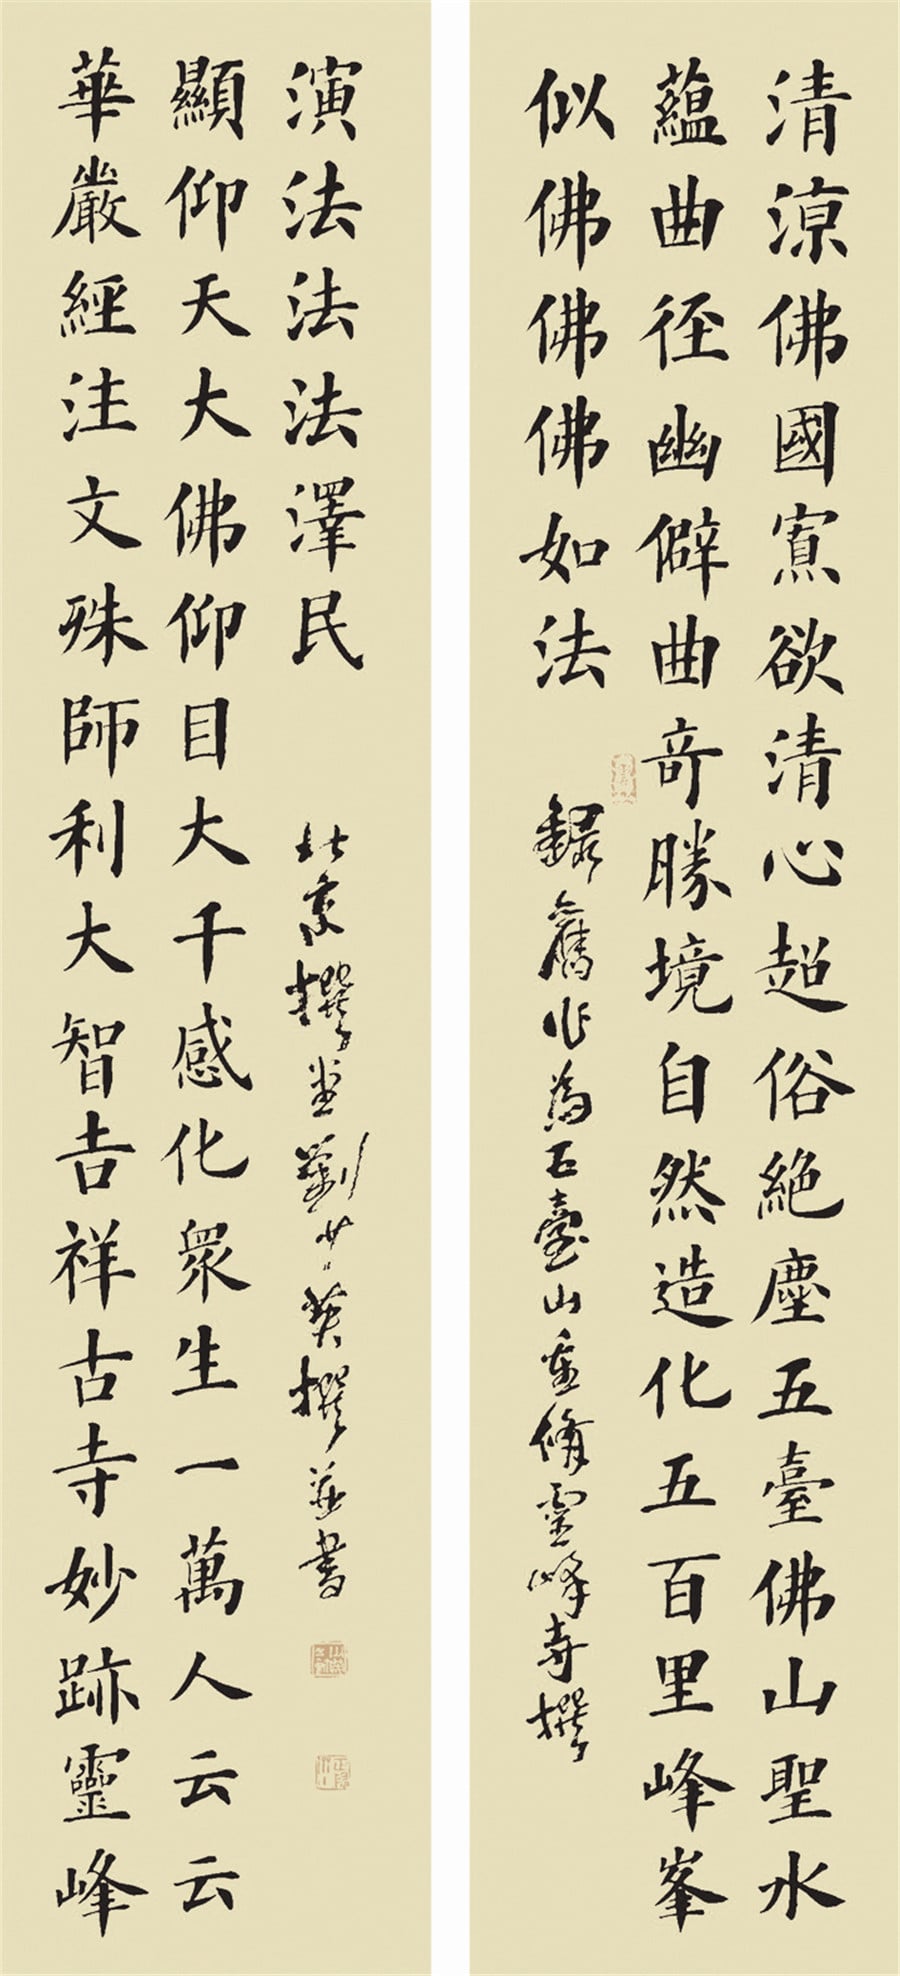 清涼佛國寡欲清心超俗絕塵五臺佛山聖水
蘊曲徑幽僻曲奇勝境自然造化五百里峰峯
似佛佛佛如法
錄舊作為五臺山重修靈峰寺撰
華嚴經注文殊師利大智吉祥古寺妙跡靈峰
顯仰天大佛仰目大千感化眾生一萬人云云
演法法法澤民
北京撰堂劉英撰並書